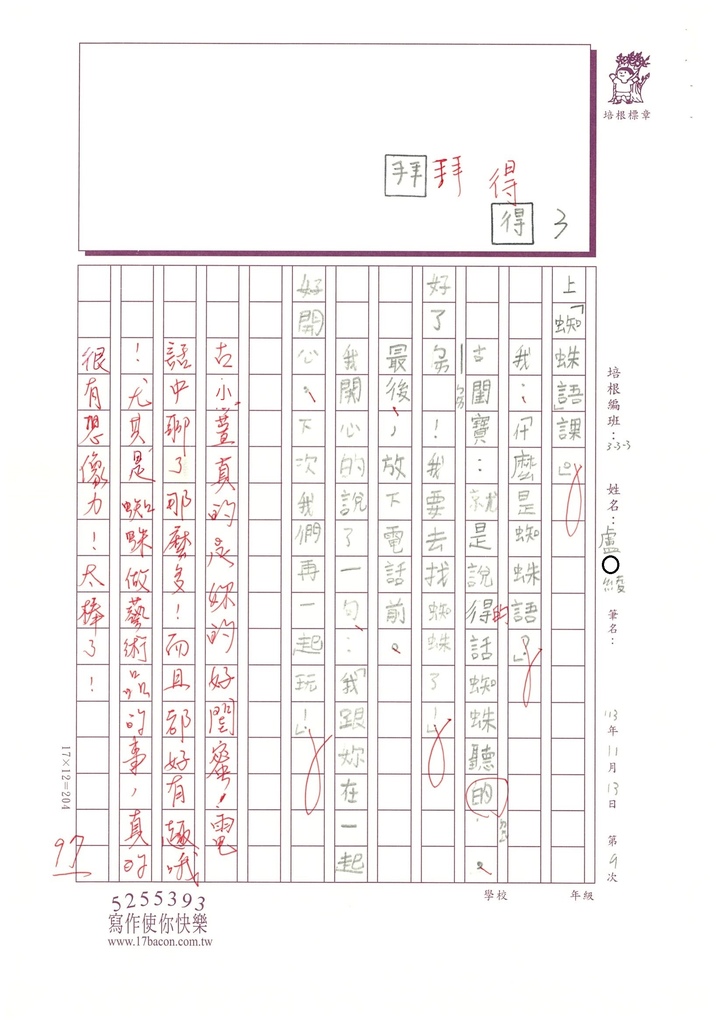 培根標章
拜 拜 得
得 3
培根編班：3-3-3 姓名：盧○ 筆名： 113年11月13日 第9次
上「蜘蛛語」課。」
我：「什麼是蜘蛛語？」
古閨寶：就是說得的話蜘蛛聽的ㄉㄨㄥˇ。
好了ㄌㄞ ㄅㄞ！我要去找蜘蛛了！」
最後，放下電話前。
我開心的說了一句：「我跟妳在一起
好開心，下次我們再一起玩！」
古小萱真的是妳的好閨蜜！電
話中聊了那麼多！而且都好有趣哦
！尤其是蜘蛛做藝術品的事，真的
很有想像力！太棒了！
97
17×12=204
學校 年級
5255393
寫作使你快樂
www.17bacon.com.tw